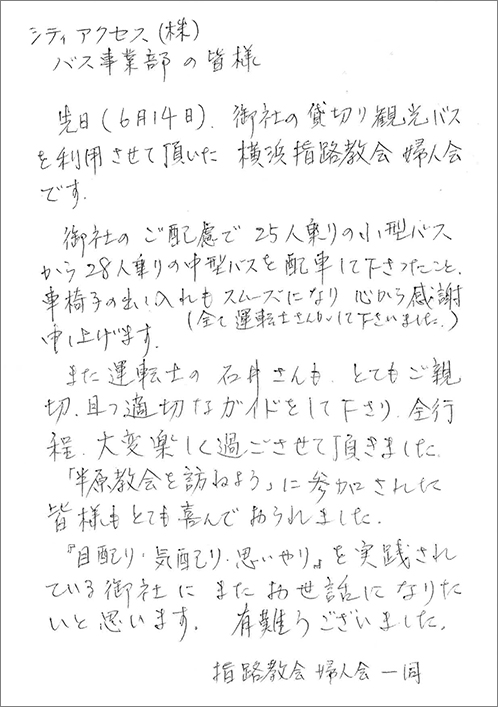 シティアクセス(株)
バス事業部の皆様
先日(6月14日)、御社の貸切り観光バス
を利用させて頂いた 横浜指路教会 婦人会
です.
御社のご配慮で 25人乗りの小型バス
から28人乗りの中型バスを配車して下さったこと、
車椅子の出し入れもスムーズになり 心から感謝
(全て運転士さんがして下さいました。)
申上げます.
また運転士の 石井さんも、とてもご親
切、且つ適切なガイドをして下さり、全行
程、大変楽しく過ごさせて頂きました.
「半原教会を訪ねよう」に参加された
皆様もとても喜んでおられました.
『目配り・気配り・思いやり』を実践され
ている御社に またお世話になりた
いと思います. 有難うございました.
指路教会 婦人会 一同